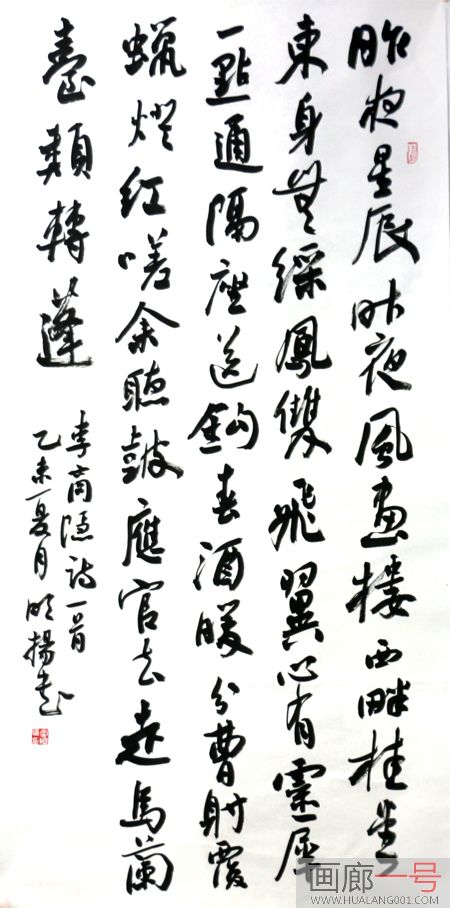 昨夜星辰昨夜風畫樓西畔桂堂
東身無綵鳳雙飛翼心有靈犀
一點通隔座送鉤春酒暖分曹射覆
蠟燈紅嗟余聽鼓應官去走馬蘭
臺類轉蓬
李商隱詩一首
乙未夏月明揚書
画廊一号
WWW.HUALANG001.COM